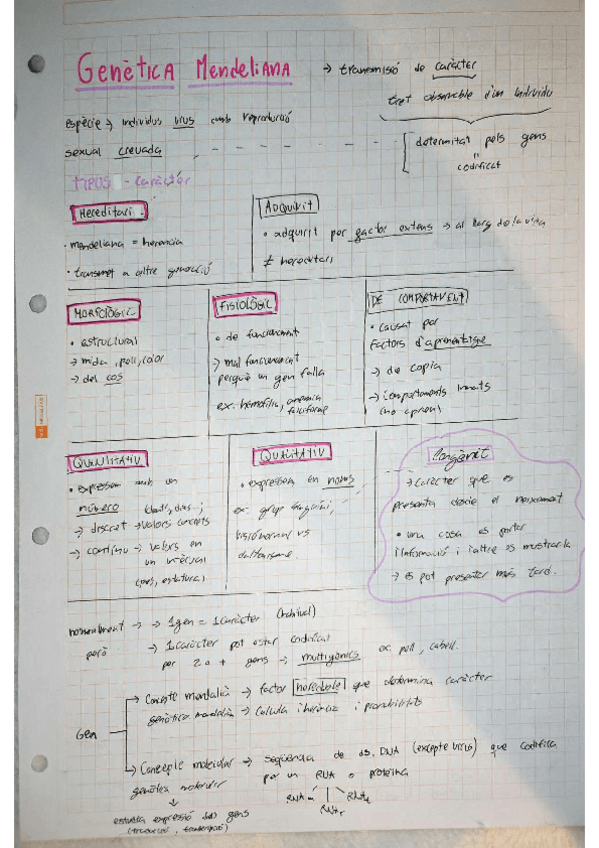 Genètica Mendeliana → transmisió de caràcter
tret observable d'un individu
espècie → individus vius amb reproducció
sexual creuada
determitat pels gens
codificat
TIPUS - caràcter
Hereditari
• mendeliana = herència
• transmet a altre generació
ADQUIRIT
• adquirit per factor extens → al llarg de la vida
≠ hereditari
MORFOLÒGIC
• estructural
→ mida, pell, color
→ del cos
FISIOLÒGIC
• de funcionament
→ mal funcionament
perquè un gen falla
ex. hemofília, anèmia
falciforme
DE COMPORTAMENT
• causat per
factors d'aprenentatge
→ de copia
→ comportaments innats
(no aprens)
QUANTITATIU
• expressem amb un
número
→ discret → valors concrets
→ continu → valors en
un interval
(pes, estatura)
QUALITATIU
• expressem en noms
ex. grup sanguini,
visió normal vs
daltonisme.
Congènit
→ caràcter que es
presenta desde el naixement
• una cosa es portar
l'informació i l'altre es mostrar-la
→ es pot presentar més tard.
normalment → 1 gen = 1 caràcter
però → 1 caràcter pot estar codificat
per 2 o + gens → multigènics ex. pell, cabell.
Gen
Concepte mendelià → factor heredable que determina caràcter
genètica mendelià → calcula herència i probabilitats
Concepte molecular → seqüència de ds. DNA (excepte virus) que codifica
genètica molecular per un RNA o proteïna
RNAm RNAr RNAt
estudia expressió dels gens